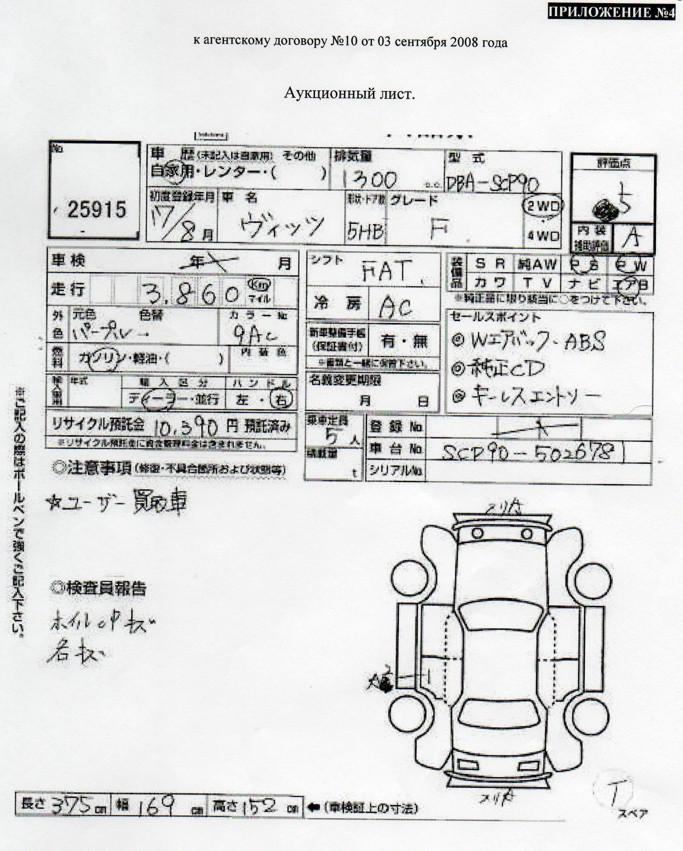 ПРИЛОЖЕНИЕ №4
к агентскому договору №10 от 03 сентября 2008 года
Аукционный лист.
No
25915
車歴 (未記入は自家用) その他
自家用・レンター・( )
排気量
1300 c.c.
型式
DBA-SCP90
評価点
5
初度登録年月
17/8月
車名
ヴィッツ
形状・ドア数
5HB
グレード
F
2WD
4WD
内装補助評価
A
車検 年 月
走行 3,860 Km マイル
シフト
FAT
冷房
AC
装備品
SR 純AW PS PW
カワ TV ナビ エアB
※純正品に限り該当に○をつけて下さい。
外色 元色 色替 カラーNo
パープル 9AC
燃料 ガソリン・軽油・( ) 内装色
輸入車用 年式 輸入区分 ハンドル
ディーラー・並行 左・右
新車整備手帳(保証書付) 有・無
※書類と一緒に保管下さい。
名義変更期限
月 日
セールスポイント
◎Wエアバック・ABS
◎純正CD
◎キーレスエントリー
リサイクル預託金 10,390円 預託済み
※リサイクル預託金に資金管理料金は含まれません。
乗車定員
5人
積載量
t
登録No
車台No SCP90-5026781
シリアルNo
◎注意事項 (修復・不具合箇所および状態等)
☆ユーザー買取車
◎検査員報告
ホイルcPキズ
各キズ
※ご記入の際はボールペンで強くご記入下さい。
長さ 375cm 幅 169cm 高さ 152cm ←(車検証上の寸法)
T
スペア